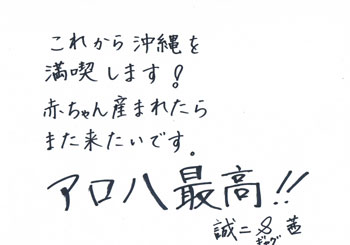 これから沖縄を
満喫します!
赤ちゃん産まれたら
また来たいです。
アロハ最高!!
誠二 & 茜